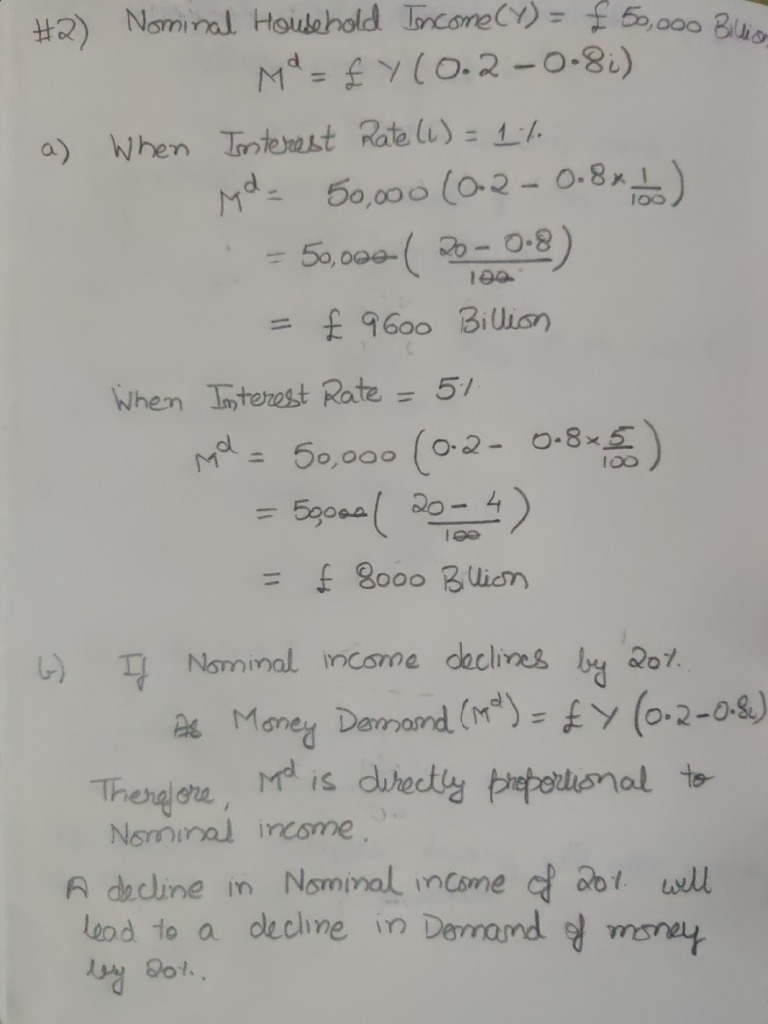 #2) Nominal Household Income(Y) = £ 50,000 Billion
M^d = £ Y (0.2 - 0.8i)
a) When Interest Rate(i) = 1%
M^d = 50,000 (0.2 - 0.8 × 1/100)
= 50,000 ( (20 - 0.8)/100 )
= £ 9600 Billion
When Interest Rate = 5%
M^d = 50,000 (0.2 - 0.8 × 5/100)
= 50,000 ( (20 - 4)/100 )
= £ 8000 Billion
b) If Nominal income declines by 20%.
As Money Demand (M^d) = £ Y (0.2 - 0.8i)
Therefore, M^d is directly proportional to
Nominal income.
A decline in Nominal income of 20% will
lead to a decline in Demand of money
by 20%.